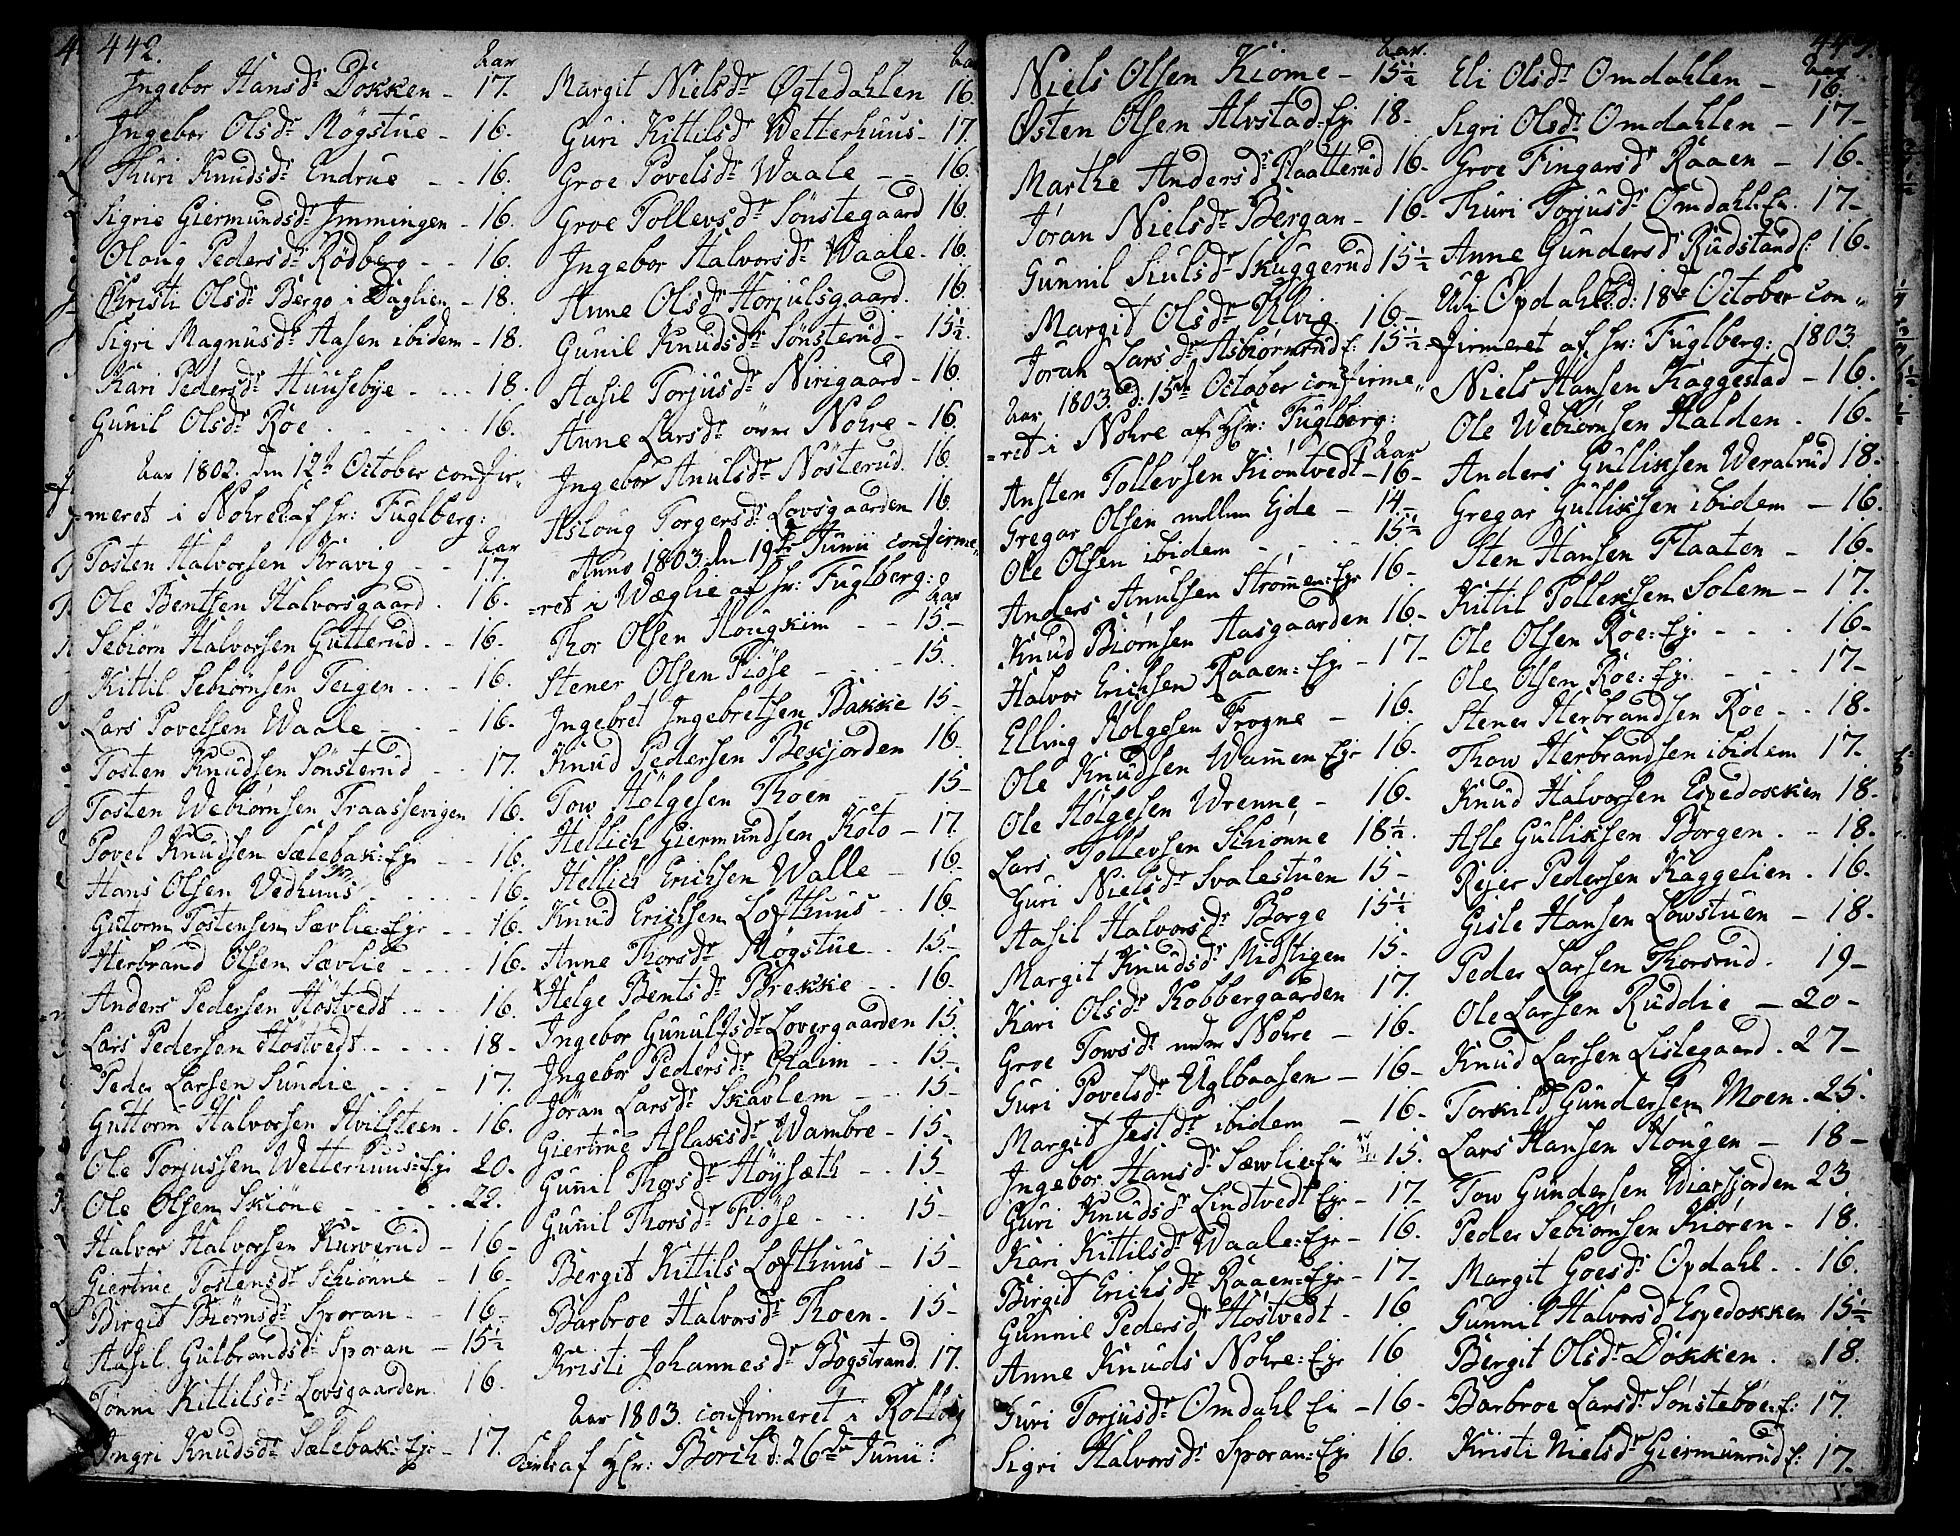 442.
Aar
Ingebor Hansdr Dokken - 17.
Ingebor Olsdr Møgstue - 16.
Thuri Knudsdr Endrue - - 16.
Sigrie Giermundsdr Immingen - 16.
Oloug Pedersdr Rödberg - - 16.
Christi Olsdr Bergo i Daglien - 18.
Sigri Magnusdr Aasen ibidem - 18.
Kari Pedersdr Huusebye - ... 18.
Gunil Olsdr Roe . . . . . . 16.
Aar 1802. den 12te October confir-
meret i Nohre af Hr: Fuglberg:
Aar
Tosten Halvorsen Kravig - - 17.
Ole Bentsen Halvorsgaard . 16.
Sebiörn Halvorsen Gutterud . - 16.
Kittil Sebiörnsen Teigen . . - 16.
Lars Povelsen Waale - - - 16.
Tosten Knudsen Sönsterud - - 17.
Tosten Webiörnsen Fraassevigen 16.
Povel Knudsen Sælebak=Eje - - 16.
Hans Olsen Vedhuus . . . . . 16.
Gutorm Tostensen Sævlie=Eje - - 16.
Herbrand Olsen Sævlie - . . . 16.
Anders Pedersen Höstvedt . . . . 16.
Lars Pedersen Höstvedt . - . . . 18 -
Peder Larsen Sundie - - - 17.
Guttorm Halvorsen Hvilsteen . 16.
Ole Torjussen Wetterhuus=Eje 20.
Ole Olsen Skiöne - - - . . 22.
Halvor Halvorsen Kurverud - 16 -
Giertrue Tostensdr Schiönne - 16 -
Birgit Biörnsdr Sporan - - 16 -
Aasil Gulbrandsdr Sporan - 15½
Tönni Kittilsdr Lovsgaarden 16.
Ingri Knudsdr Sælebak=Eje - 17.
Aar
Margit Nielsdr Øgtedahlen 16.
Guri Kittilsdr Wetterhuus - 17.
Groe Povelsdr Waale - - 16.
Groe Tollevsdr Sönstegaard 16.
Ingebor Halvorsdr Waale - 16.
Anne Olsdr Horjulsgaard. 16.
Gunil Knudsdr Sönsterud - 15½.
Aasil Torjusdr Nirigaard - 16.
Anne Larsdr övre Nohre - 16.
Ingebor Anulsdr Nösterud. 16.
Asloug Torgersdr Lovsgaarden 16.
Anno 1803. den 19de Junii confirme-
=ret i Wæglie af Hr: Fuglberg:
Aar
Thor Olsen Hougkiim - - 15 -
Stener Olsen Fiöse - . . - 15.
Ingebret Ingebretsen Bakke 15 -
Knud Pedersen Beskjorden 16 -
Tow Hölgesen Thoen - - 15 -
Hellich Giermundsen Koto - 17.
Hellich Erichsen Walle - 16 -
Knud Erichsen Lofthuus . . 16 -
Anne Thorsdr Møgstue . . 15 -
Helge Bentsdr Brekke - . . 16 -
Ingebor Gunulfsdr Lovergaarden 15.
Ingebor Pedersdr Glaim - - 15 -
Jöran Larsdr Skavlem - - 15 -
Giertrue Aslaksdr Wambre - 15 -
Gunil Thorsdr Höysæth - - 15 -
Gunil Thorsdr Fiöse - . . . 15 -
Bergit Kittils Lofthuus - 15 -
Barbroe Halvorsdr Thoen . 15 -
Kristi Johannesdr Bogstrand. 17.
Aar 1803. confirmeret i Rollag
Kirke af Hr: Borch d: 26de Junii:
Aar.
Niels Olsen Kiome - 15½
Østen Olsen Alvstad=Eje 18 -
Marthe Andersdr Plaatterud 16 -
Jöran Nielsdr Bergan - 16 -
Gunnil Kulsdr Skuggerud 15½
Margit Olsdr Ulvig 16 -
Jöran Larsdr Asbiörnrud E: 15½
Aar 1803. d: 15de October confirme-
=ret i Nohre af Hr: Fuglberg:
Aar
Ansten Tollevsen Kiontvedt - 16 -
Gregar Olsen mellem Ejde - 14 -
Ole Olsen ibidem - - . . . 15½
Anders Anulsen Strömen=Eje 16 -
Knud Biörnsen Aasgaarden 16 -
Halvor Erichsen Raaen=Eje - 17 -
Elling Holgesen Frogne - 16.
Ole Knudsen Wamen Eje 16.
Ole Hölgesen Wrenne - 16.
Lars Tollevsen Schiönne 18½.
Guri Nielsdr Svalestuen 15 -
Aasil Halvorsdr Borge 15½
Margit Knudsdr Midstigen 15 -
Kari Olsdr Kobbergaarden 17.
Groe Towsdr nedre Nohre - 16.
Guri Povelsdr Uglbaasen - 16 -
Margit Jesldr ibidem - 16 -
Ingebor Hansdr Sævlie=Eje 15.
Guri Knudsdr Lindtvedt Eje - 17 -
Kari Kittilsdr Waale=Eje - 16.
Birgit Erichsdr Raaen=Eje - 17 -
Gunnil Pedersdr Höstvedt - 16
Anne Knuds Nohre=Eje 16
Guri Torjusdr Omdahl Ei - 16 -
Sigri Halvorsdr Sporan=Eje 16.
443.
Aar
Eli Olsdr Omdahlen - 16
Sigri Olsdr Omdahlen - 17 -
Groe Fingarsdr Raaen - 16 -
Thuri Torjusdr Omdahl: Ei. 17 -
Anne Gundersdr Rudstand E: 16 -
Udi Opdahl: d: 18de October con-
firmeret af Hr: Fuglberg: 1803
Niels Hansen Kaggestad - 16.
Ole Webiörnsen Halden . 16.
Anders Gulliksen Weralrud 18 -
Gregar Gulliksen ibidem - 16.
Sten Hansen Flaaten - 16 -
Kittil Tolleksen Solem - 17.
Ole Olsen Roe=Eje - . . 16 -
Ole Olsen Roe=Eje . - - . 17 -
Stener Herbrandsen Roe - . 18.
Thow Herbrandsen ibidem 17 -
Knud Halvorsen Espedokken 18.
Asle Gulliksen Borgen . . . 18.
Rejer Pedersen Kaggelien . 16.
Gisle Hansen Lowstuen - 18.
Peder Larsen Thorsrud . 19 -
Ole Larsen Ruddie - 20 -
Knud Larsen Lislegaard . 27 -
Torkild Gundersen Moen . 25.
Lars Hansen Hougen - 18 -
Tow Gundersen Wiarfjorden 23
Peder Sebiörnsen Kiören . 18.
Margit Goesdr Opdahl . . 16.
Gunnil Halvorsdr Espedokken 15½
Bergit Olsdr Dokken . . 18.
Barbroe Larsdr Sönsteböe=E: 17.
Kristi Nielsdr Giermunrud E: 17 -